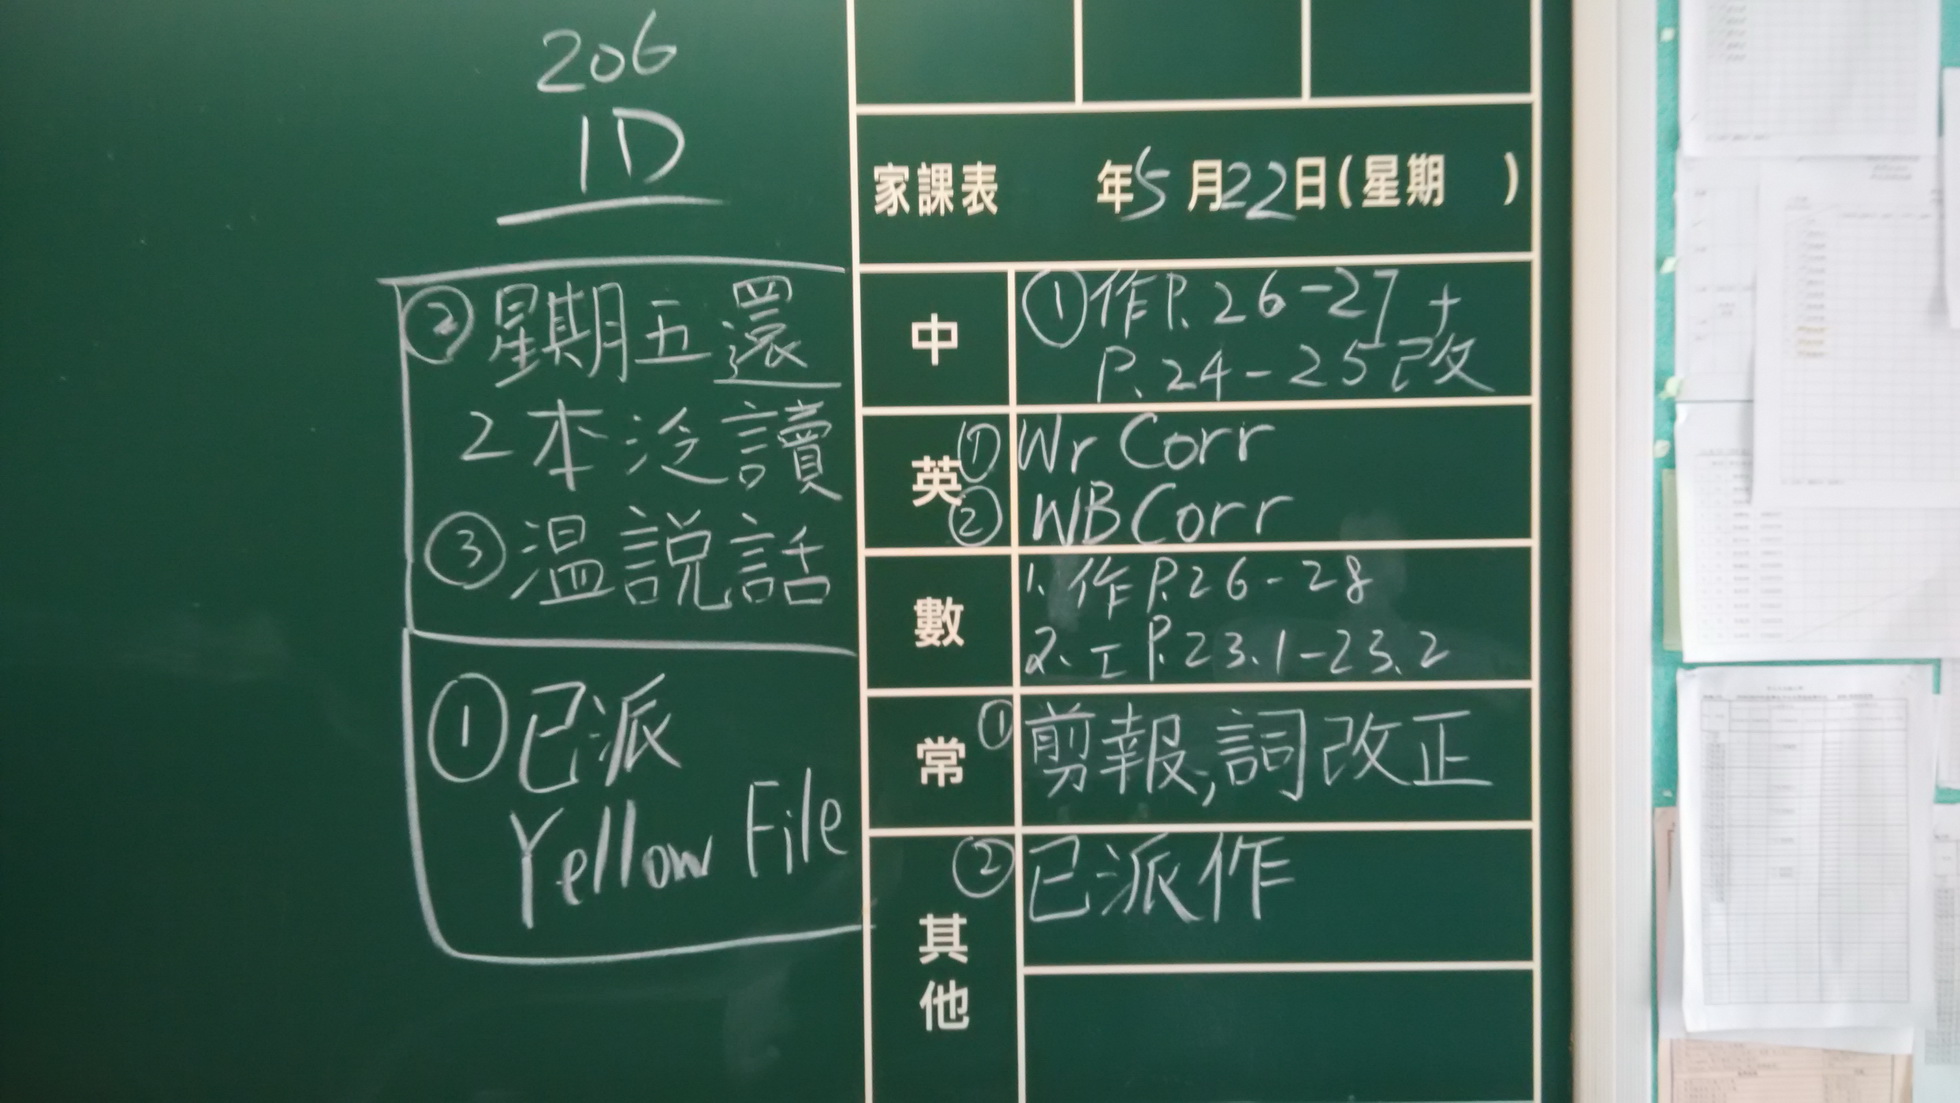 206
1D
② 星期五還
2本泛讀
③ 温説話
① 已派
Yellow File
家課表 年5月22日(星期 )
中 ① 作P.26-27+
P.24-25改
英 ① Wr Corr
② WB Corr
數 1. 作P.26-28
2. 工P.23.1-23.2
常 ① 剪報,詞改正
其他 ② 已派作